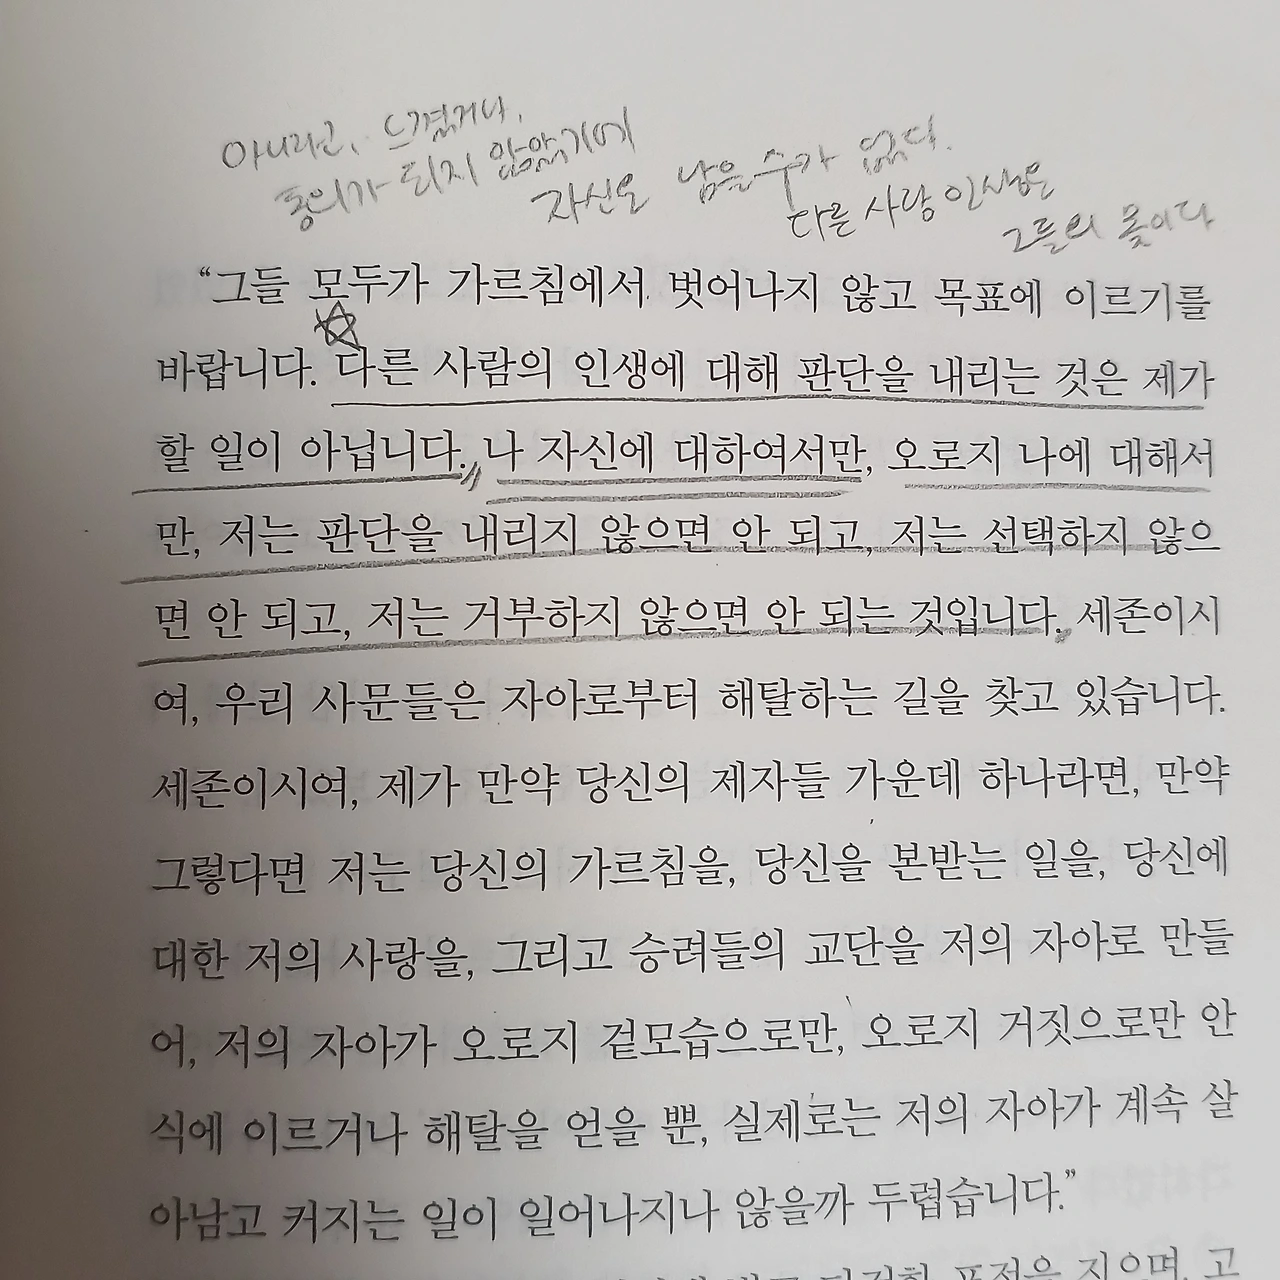 아니라고, 느꼈거나,
동의가 되지 않았기에
자신으로 남을 수가 없다.
다른 사람 인생은
그들의 몫이다
“그들 모두가 가르침에서 벗어나지 않고 목표에 이르기를
바랍니다. 다른 사람의 인생에 대해 판단을 내리는 것은 제가
할 일이 아닙니다. 나 자신에 대하여서만, 오로지 나에 대해서
만, 저는 판단을 내리지 않으면 안 되고, 저는 선택하지 않으
면 안 되고, 저는 거부하지 않으면 안 되는 것입니다. 세존이시
여, 우리 사문들은 자아로부터 해탈하는 길을 찾고 있습니다.
세존이시여, 제가 만약 당신의 제자들 가운데 하나라면, 만약
그렇다면 저는 당신의 가르침을, 당신을 본받는 일을, 당신에
대한 저의 사랑을, 그리고 승려들의 교단을 저의 자아로 만들
어, 저의 자아가 오로지 겉모습으로만, 오로지 거짓으로만 안
식에 이르거나 해탈을 얻을 뿐, 실제로는 저의 자아가 계속 살
아남고 커지는 일이 일어나지나 않을까 두렵습니다.”